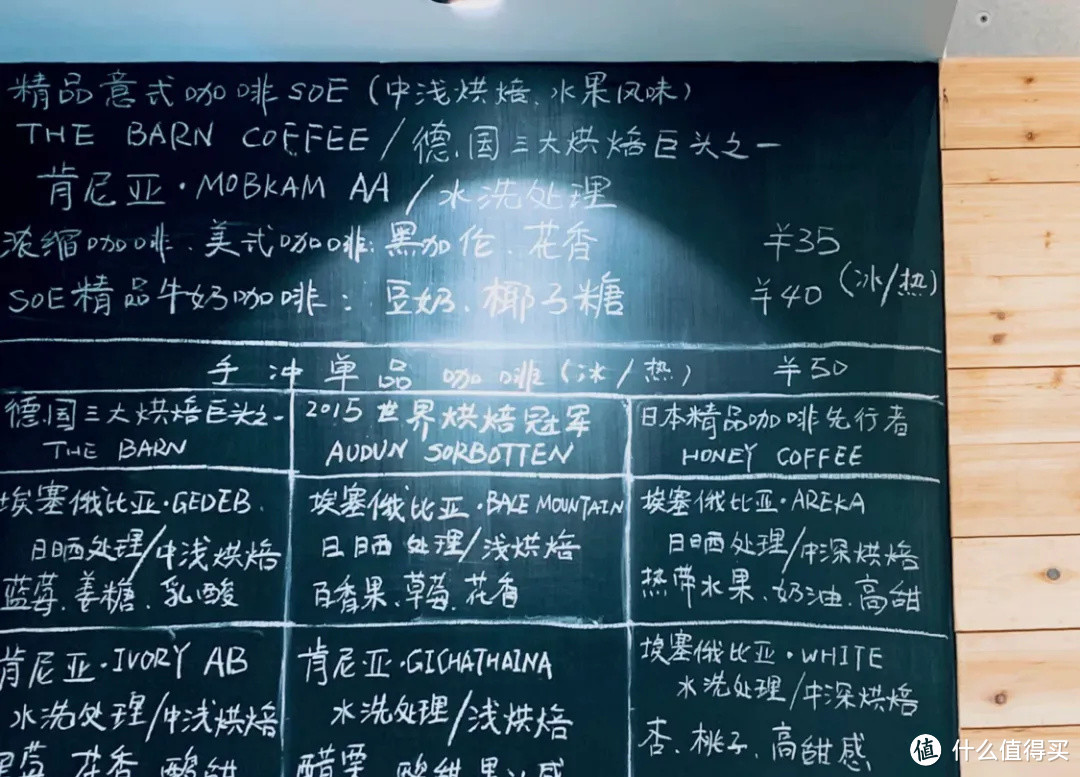 精品意式咖啡SOE（中浅烘焙、水果风味）
THE BARN COFFEE/德国三大烘焙巨头之一
肯尼亚·MOBKAM AA/水洗处理
浓缩咖啡、美式咖啡：黑加伦、花香 ¥35
SOE精品牛奶咖啡：豆奶、椰子糖 ¥40（冰/热）
手冲单品咖啡（冰/热） ¥50
德国三大烘焙巨头之一
THE BARN
2015世界烘焙冠军
AUDUN SORBOTTEN
日本精品咖啡先行者
HONEY COFFEE
埃塞俄比亚·GEDEB
日晒处理/中浅烘焙
蓝莓、姜糖、乳酸
埃塞俄比亚·BALE MOUNTAIN
日晒处理/浅烘焙
百香果、草莓、花香
埃塞俄比亚·AREKA
日晒处理/中深烘焙
热带水果、奶油、高甜
肯尼亚·IVORY AB
水洗处理/中浅烘焙
花香、酸甜
肯尼亚·GICHATHAINA
水洗处理/浅烘焙
醋栗、酸甜
埃塞俄比亚·WHITE
水洗处理/中深烘焙
杏、桃子、高甜感
值 什么值得买